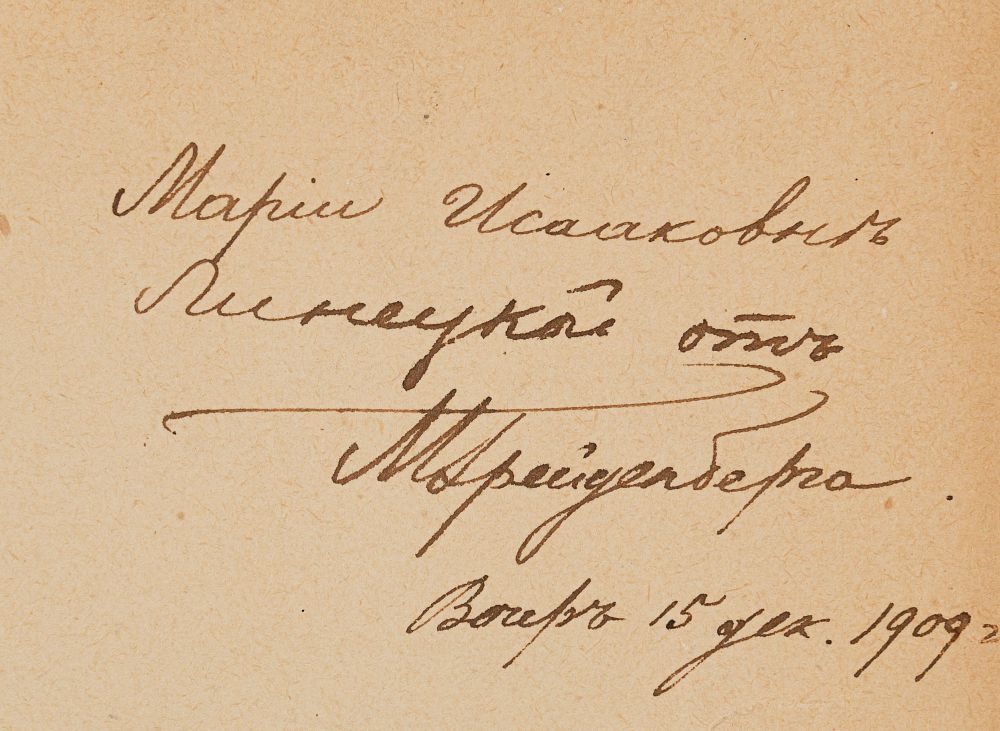 Маріи Исааковнѣ
Линецкой отъ
М. Фрейденберга
Вечеръ 15 дек. 1909 г